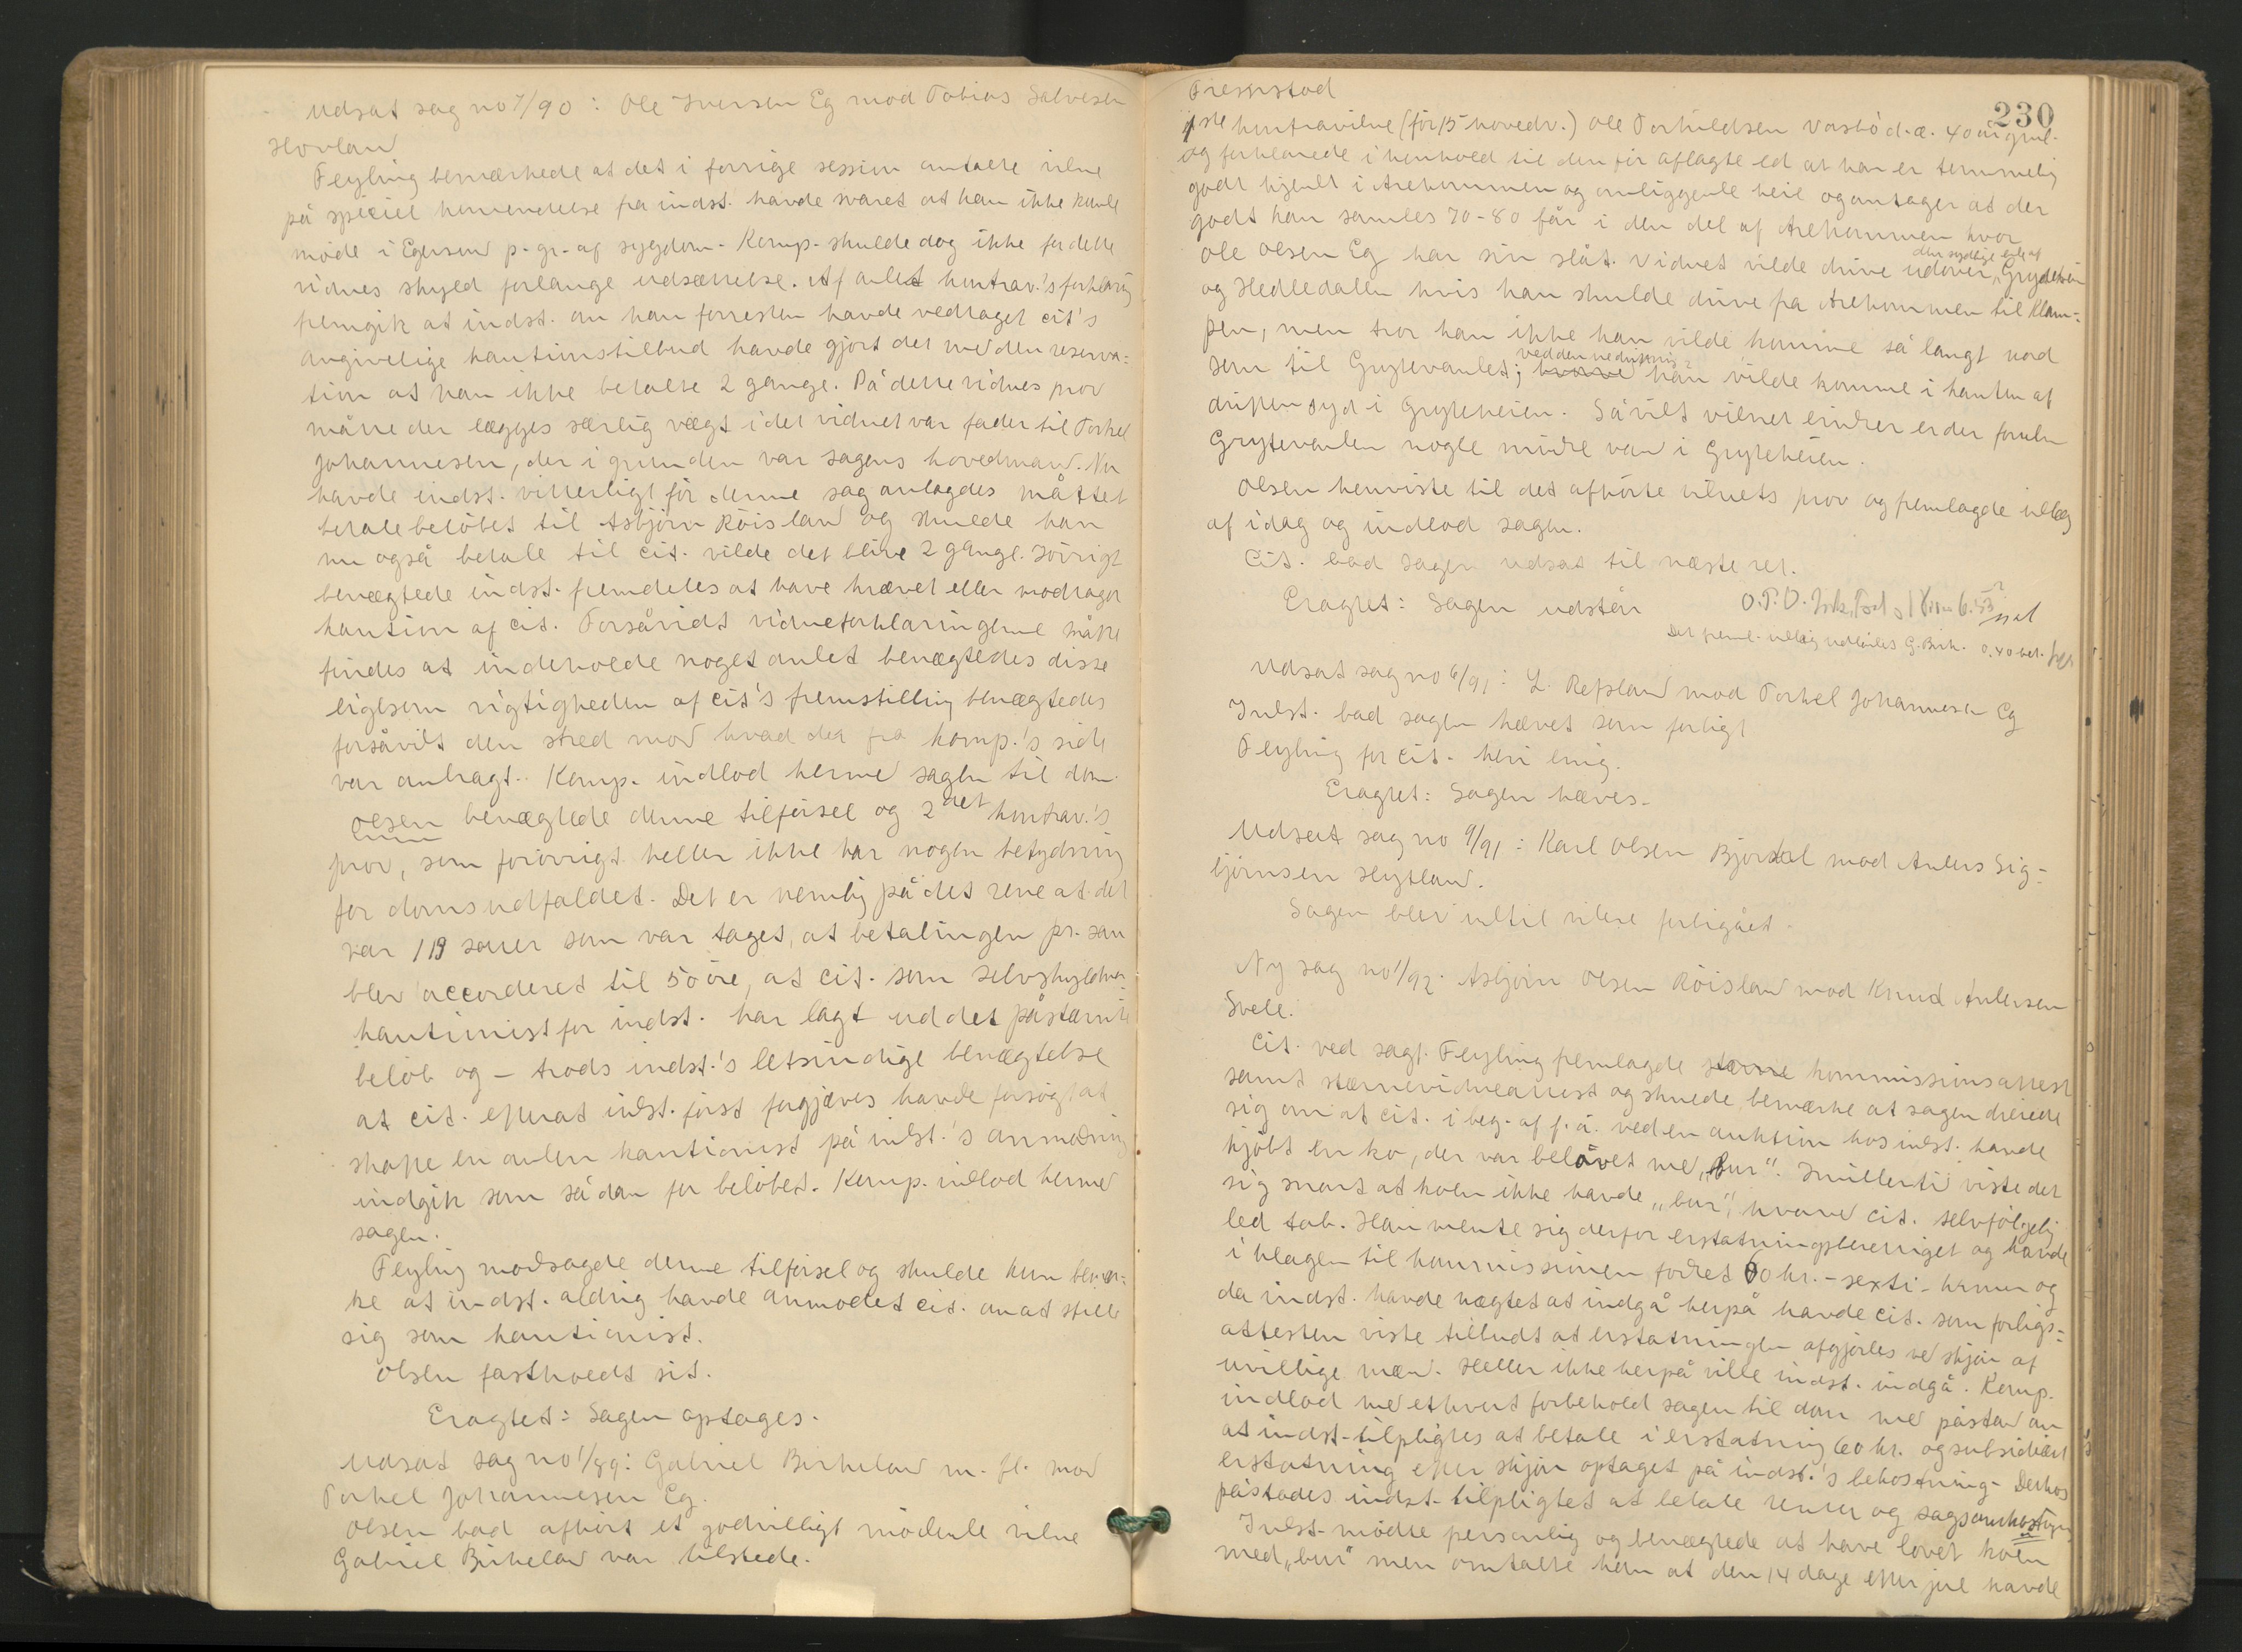 Udsat sag no 7/90: Ole Iversen Eg mod Tobias Salvesen
Hovland
Feyling bemærkede at det i forrige session omtalte vidne
på speciel henvendelse fra indst. havde svaret at han ikke kunde
møde i Egersund p. gr. af sygdom. Komp. skulde dog ikke for dette
vidnes skyld forlange udsættelse. Af andet kontrav.'s forklaring
fremgik at indst. om han forresten havde vedtaget cit's
angivelige kautionstilbud havde gjort det med den reserva=
tion at han ikke betalte 2 gange. På dette vidnes prov
måtte der lægges særlig vægt idet vidnet var fader til Torkel
Johannesen, der i grunden var sagens hovedmand. Nu
havde indst. vitterligt før denne sag anlagdes måttet
betale beløbet til Asbjørn Røisland og skulde han
nu også betale til cit. vilde det blive 2 gange. Iøvrigt
benægtede indst. fremdeles at have krævet eller modtaget
kaution af cit. Forsåvidt vidneforklaringerne måtte
findes at indeholde noget andet benægtedes disse
ligesom rigtigheden af cit's fremstilling benægtedes
forsåvidt den stred mod hvad der fra komp.'s side
var anbragt. Komp. indlod hermed sagen til dom.
Olsen benægtede denne tilførsel og 2det kontrav.'s
prov, som forøvrigt heller ikke har nogen betydning
for domsudfaldet. Det er nemlig på det rene at det
var 119 sauer som var taget, at betalingen pr. sau
blev accorderet til 50 øre, at cit. som selvskyldner
kautionist for indst. har lagt ud det påstævnte
beløb og – trods indst.'s letsindige benægtelse
at cit. efterat indst. først forgjæves havde forsøgt at
skaffe en anden kautionist på indst.'s anmodning
indgik som sådan for beløbet. Komp. indlod hermed
sagen.
Feyling modsagde denne tilførsel og skulde kun bemær=
ke at indst. aldrig havde anmodet cit. om at stille
sig som kautionist.
Olsen fastholdt sit.
Eragtet: Sagen optages.
Udsat sag no 1/89: Gabriel Birkeland m. fl. mod
Torkel Johannesen Eg.
Olsen bad afhørt et godvilligt mødende vidne
Gabriel Birkeland var tilstede.
230
Fremstod
1ste kontravidne (før 15 hovedv.) Ole Torkildsen Vasbø d. æ. 40 år gml.
og forklarede i henhold til den før aflagte ed at han er temmelig
godt kjendt i Arekummen og omliggende heie og antager at der
godt kan samles 70-80 får i den del af Arekummen hvor
Ole Olsen Eg har sin slåt. Vidnet vilde drive udover den sydlige ende af Gryteheien
og Hedledalen hvis han skulde drive fra Arekummen til Klam=
pen, men tror han ikke han vilde komme så langt nord
som til Grytevandet; ved den nedrivning han vilde komme i kanten af
driften syd i Gryteheien. Såvidt vidnet erindrer er der foruden
Grytevanden nogle mindre vand i Gryteheien.
Olsen henviste til det afhørte vidnets prov og fremlagde indlæg
af idag og indlod sagen.
Cit. bad sagen udsat til næste ret.
Eragtet: Sagen udstår
Det freml. indlæg udlånes G. Birk. 0.40 bet.
Udsat sag no 6/91: L. Refsland mod Torkel Johannesen Eg
Indst. bad sagen hævet som forligt
Feyling for cit. heri enig.
Eragtet: Sagen hæves.
Udsat sag no 9/91: Karl Olsen Bjordal mod Anders Sig=
bjørnsen Hytland.
Sagen blev indtil videre forbigået.
Ny sag no 1/92. Asbjørn Olsen Røisland mod Knud Andersen
Svele.
Cit. ved sagf. Feyling fremlagde kommissionsattest
samt stævnevidneattest og skulde bemærke at sagen dreiede
sig om at cit. i beg. af f. å. ved en auktion hos indst. havde
kjøbt en ko, der var belovet med „bur". Imidlertid viste det
sig snart at koen ikke havde „bur", hvorved cit. selvfølgelig
led tab. Han mente sig derfor erstatningsberettiget og havde
i klagen til kommissionen fodret 60 kr. – sexti – kroner og
da indst. havde nægtet at indgå herpå havde cit. som forligs=
attesten viste tilbudt at erstatningen afgjordes ved skjøn af
uvillige mænd. Heller ikke herpå vilde indst. indgå. Komp.
indlod med ethvert forbehold sagen til dom med påstand om
at indst. tilpligtes at betale i erstatning 60 kr. og subsidiært
erstatning efter skjøn optaget på indst.'s bekostning. Derhos
påstodes indst. tilpligtet at betale renter og sagsomkostninger
Indst. mødte personlig og benægtede at have lovet koen
med „bur" men omtalte kun at den 14 dage efter jul havde